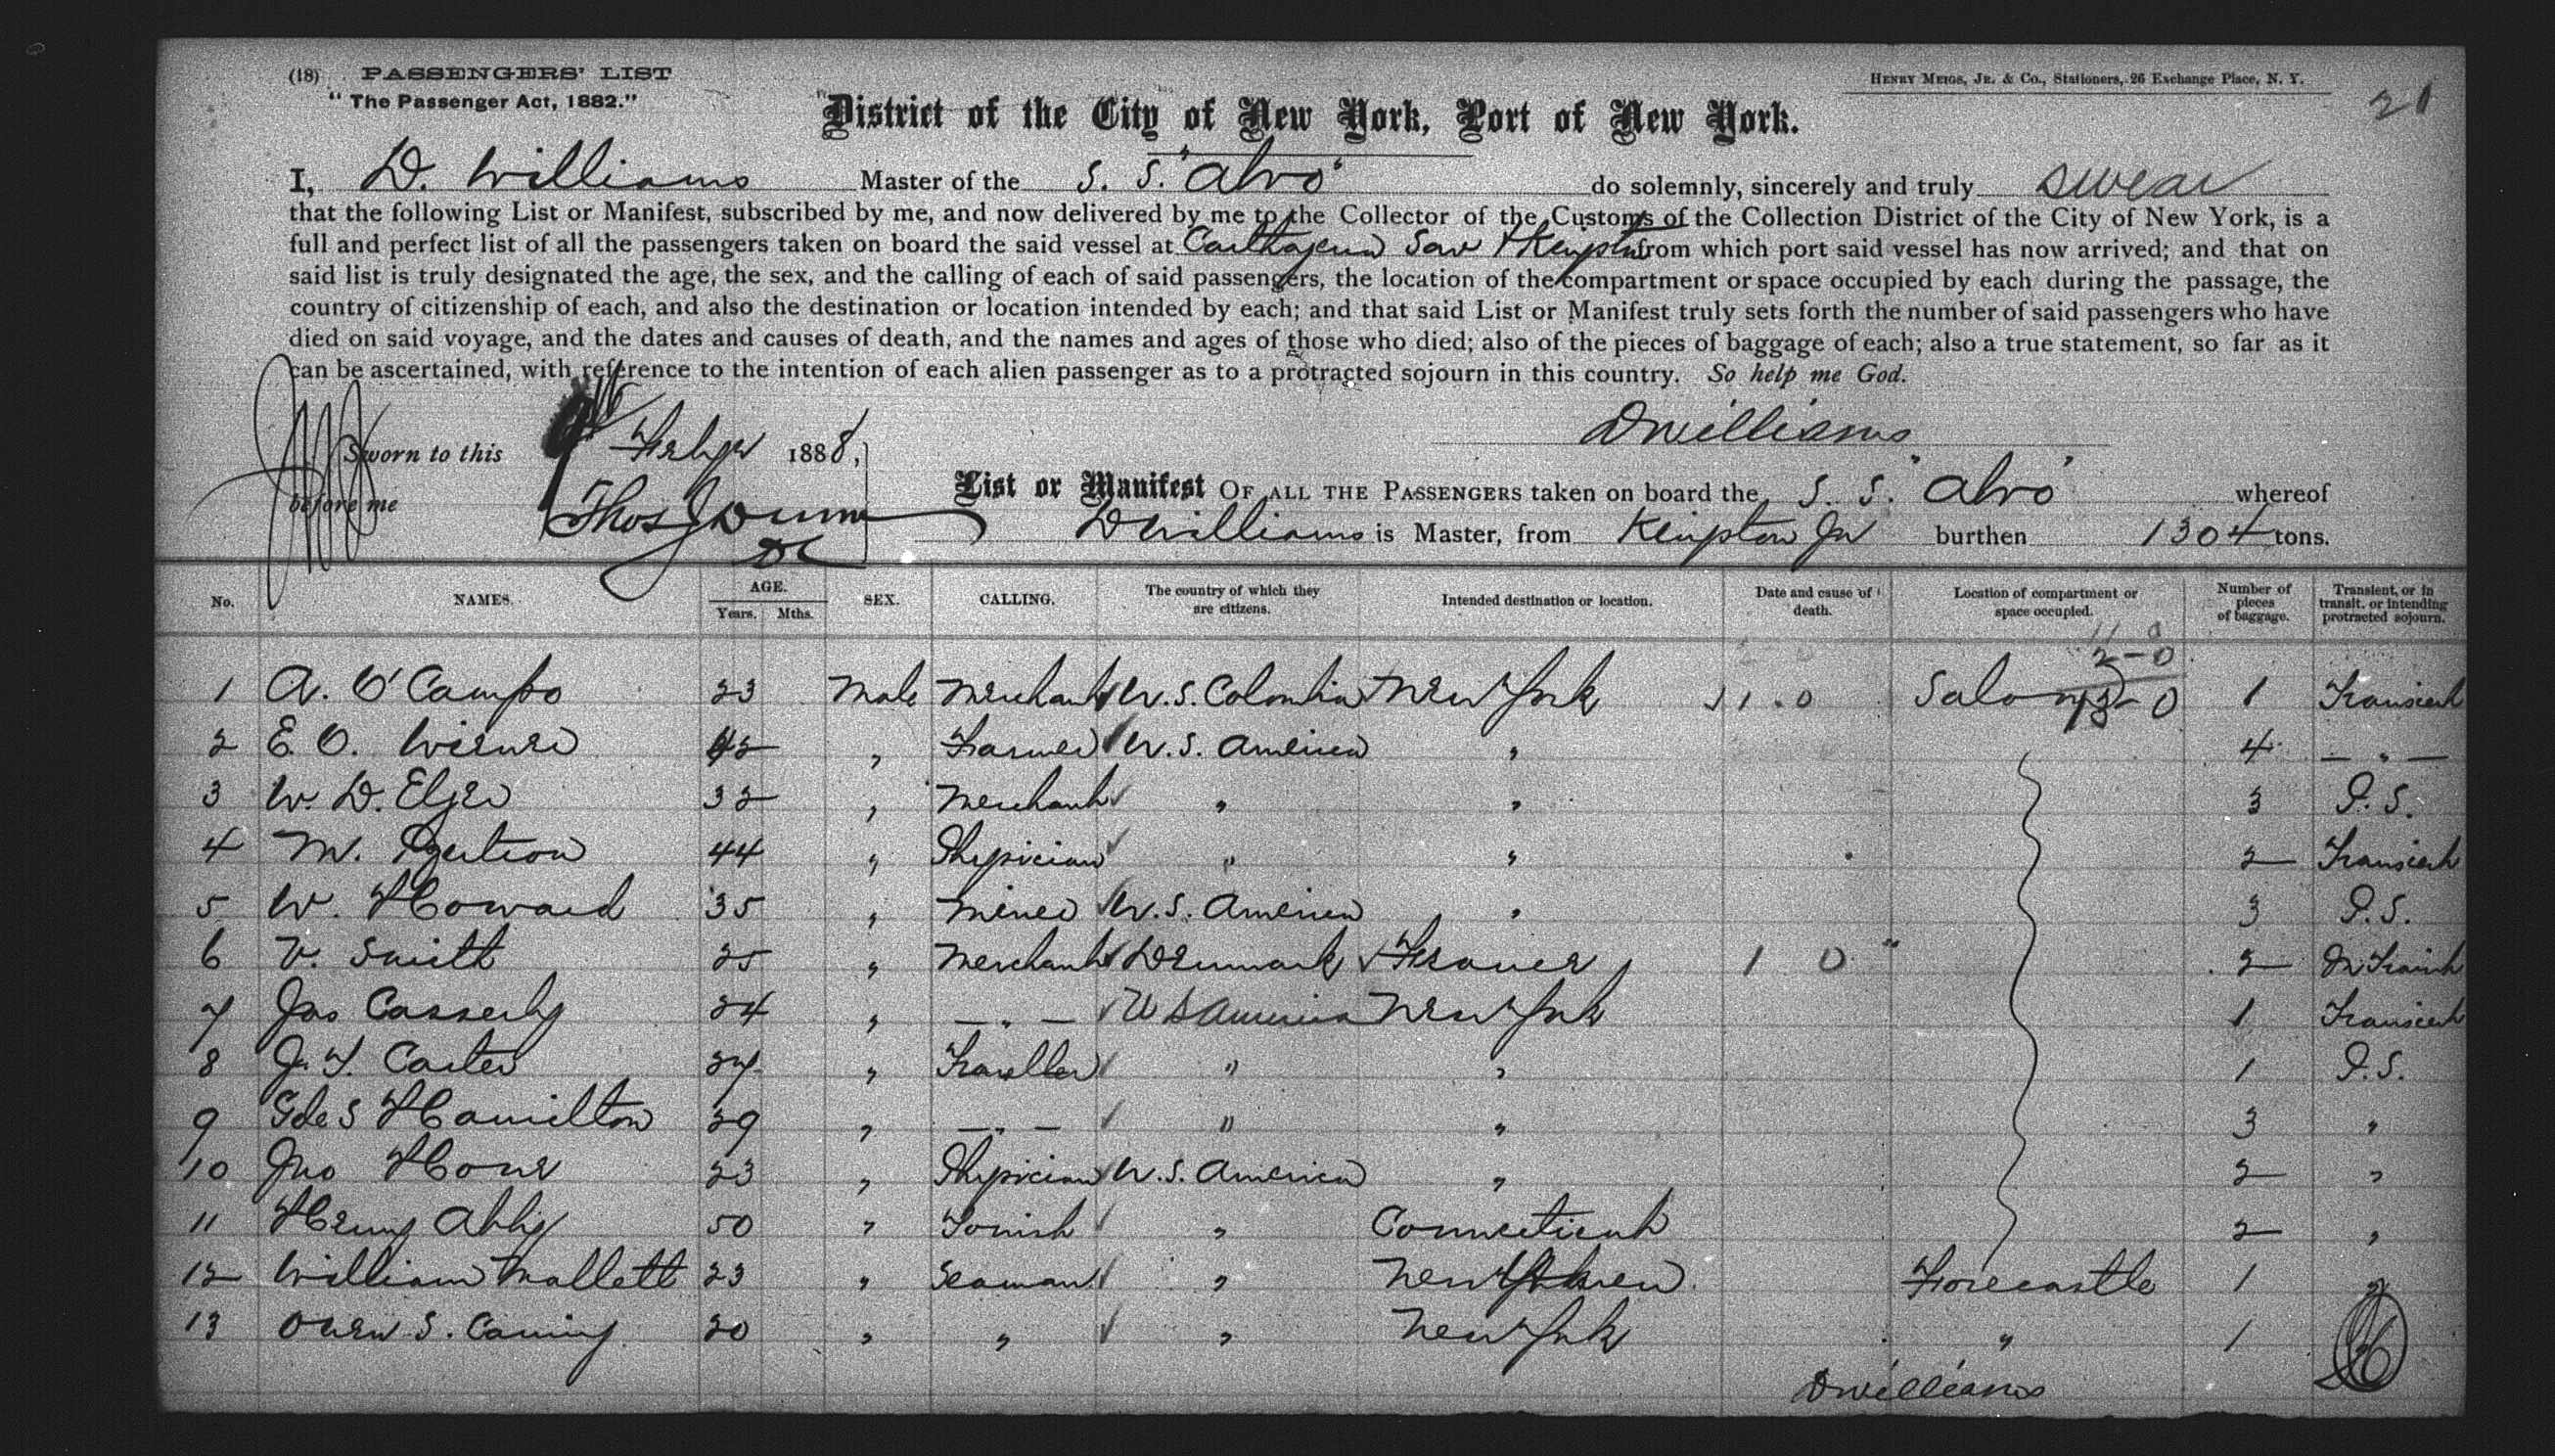 (18) PASSENGERS' LIST
" The Passenger Act, 1882."
HENRY MEIGS, JR. & CO., Stationers, 26 Exchange Place, N. Y.
21
District of the City of New York, Port of New York.
I, D. Williams Master of the S. S. "Alvo" do solemnly, sincerely and truly swear
that the following List or Manifest, subscribed by me, and now delivered by me to the Collector of the Customs of the Collection District of the City of New York, is a
full and perfect list of all the passengers taken on board the said vessel at Carthagena Sav & Kingston from which port said vessel has now arrived; and that on
said list is truly designated the age, the sex, and the calling of each of said passengers, the location of the compartment or space occupied by each during the passage, the
country of citizenship of each, and also the destination or location intended by each; and that said List or Manifest truly sets forth the number of said passengers who have
died on said voyage, and the dates and causes of death, and the names and ages of those who died; also of the pieces of baggage of each; also a true statement, so far as it
can be ascertained, with reference to the intention of each alien passenger as to a protracted sojourn in this country. So help me God.
DWilliams
Sworn to this Feby 1888,
before me Thos J Dunn
DC
List or Manifest OF ALL THE PASSENGERS taken on board the S. S. "Alvo" whereof
DWilliams is Master, from Kingston Ja burthen 1304 tons.
No. NAMES. AGE. Years. Mths. SEX. CALLING. The country of which they are citizens. Intended destination or location. Date and cause of death. Location of compartment or space occupied. Number of pieces of baggage. Transient, or in transit, or intending protracted sojourn.
2-0
1 A. O'Campo 23 Male Merchant U.S. Colombia New York 1.0 Saloon 1 Transient
2 E. O. 42 " Farmer U.S. America " 4 — " —
3 W. D. 32 " Merchant " " 3 P.S.
4 M. 44 " Physician " " 2 Transient
5 W. Howard 35 " Miner U.S. America " 3 P.S.
6 V. Smith 25 " Merchant Denmark France 1 0 2 In Transit
7 Jas Casserly 24 " — " — U S America New York 1 Transient
8 J. T. Carter 27 " Traveller " " 1 P.S.
9 S Hamilton 29 " — " — " " 3 "
10 Jno Hone 23 " Physician U.S. America " 2 "
11 Henry Abby 50 " Tourist " Connecticut 2 "
12 William Mallett 23 " Seaman " New Haven Forecastle 1 "
13 Owen S. 20 " " " New York " 1
DWilliams